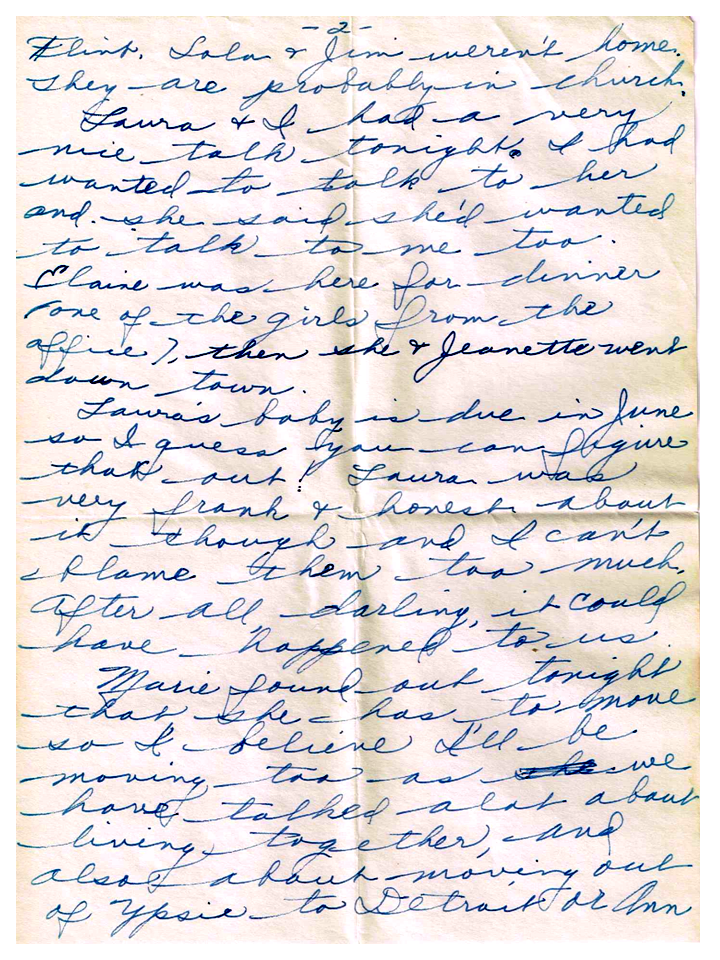 -2-
Flint. Lola & Jim weren't home.
They are probably in church.
Laura & I had a very
nice talk tonight. I had
wanted to talk to her
and she said she'd wanted
to talk to me too.
Elaine was here for dinner
(one of the girls from the
office), then she & Jeanette went
down town.
Laura's baby is due in June
so I guess you can figure
that out! Laura was
very frank & honest about
it though and I can't
blame them too much.
After all, darling, it could
have happened to us.
Marie found out tonight
that she has to move
so I believe I'll be
moving too as we
have talked alot about
living together, and
also about moving out
of Ypsie to Detroit or Ann